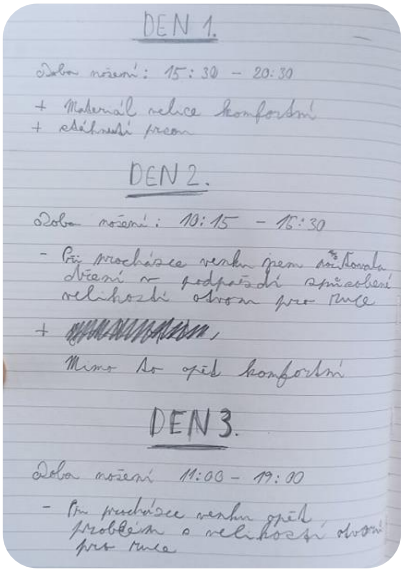 DEN 1.
Doba nošení: 15:30 - 20:30
+ Materiál velice komfortní
+ stáhnutí prsou
DEN 2.
Doba nošení: 10:15 - 15:30
- Při procházce venku jsem pociťovala
dření v podpaždí způsobené
velikostí otvorů pro ruce
+
Mimo to opět komfortní
DEN 3.
Doba nošení 11:00 - 19:00
- Při procházce venku opět
problém s velikostí otvorů
pro ruce